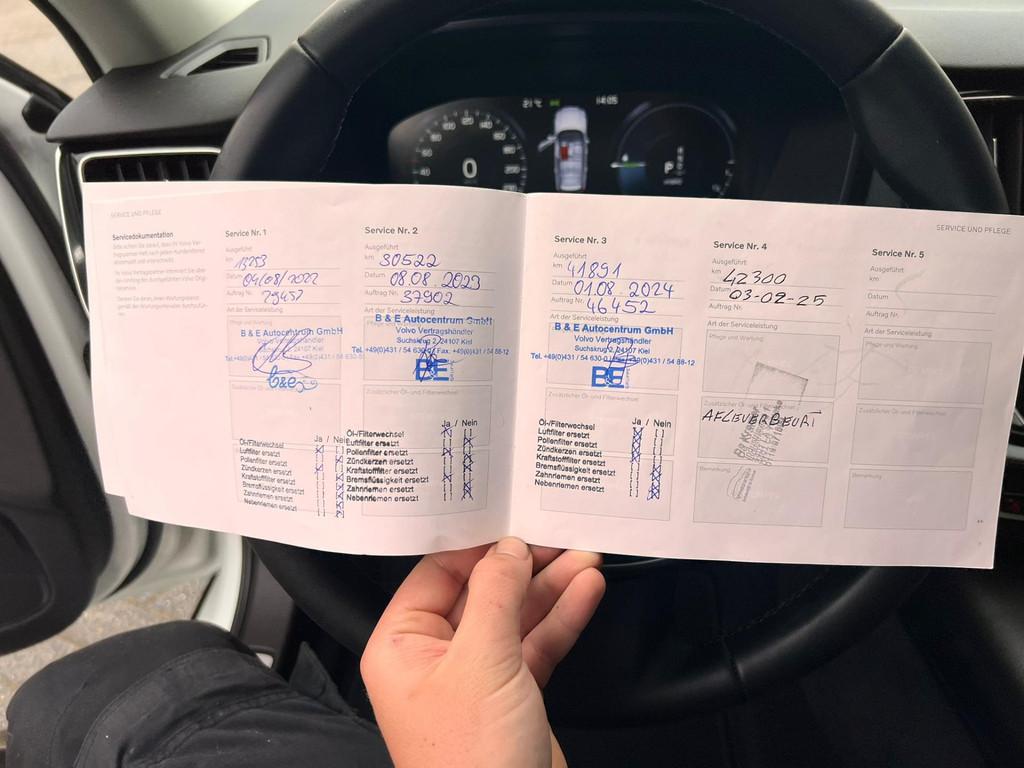 SERVICE UND PFLEGE
Servicedokumentation
Service Nr. 1
Ausgeführt
km
Datum 04/08/2022
Auftrag Nr. 29457
Art der Serviceleistung
Pflege und Wartung
B & E Autocentrum GmbH
24107 Kiel
b&e
Ja / Nein
Öl-/Filterwechsel
Luftfilter ersetzt
Pollenfilter ersetzt
Zündkerzen ersetzt
Kraftstofffilter ersetzt
Bremsflüssigkeit ersetzt
Zahnriemen ersetzt
Nebenriemen ersetzt
Service Nr. 2
Ausgeführt
km 30522
Datum 08.08.2023
Auftrag Nr. 37902
Art der Serviceleistung
B & E Autocentrum GmbH
Volvo Vertragshändler
Suchskrug 2, 24107 Kiel
Tel. +49(0)431 / 54 630-0 / Fax: +49(0)431 / 54 88-12
BE
Ja / Nein
Öl-/Filterwechsel
Luftfilter ersetzt
Pollenfilter ersetzt
Zündkerzen ersetzt
Kraftstofffilter ersetzt
Bremsflüssigkeit ersetzt
Zahnriemen ersetzt
Nebenriemen ersetzt
Service Nr. 3
Ausgeführt
km 41891
Datum 01.08.2024
Auftrag Nr. 46452
Art der Serviceleistung
B & E Autocentrum GmbH
Volvo Vertragshändler
Suchskrug 2, 24107 Kiel
Tel. +49(0)431 / 54 630-0 / Fax: +49(0)431 / 54 88-12
BE
Ja / Nein
Öl-/Filterwechsel
Luftfilter ersetzt
Pollenfilter ersetzt
Zündkerzen ersetzt
Kraftstofffilter ersetzt
Bremsflüssigkeit ersetzt
Zahnriemen ersetzt
Nebenriemen ersetzt
SERVICE UND PFLEGE
Service Nr. 4
Ausgeführt
km 42300
Datum 03-02-25
Auftrag Nr.
Art der Serviceleistung
Pflege und Wartung
Zusätzlicher Öl- und Filterwechsel
AFLEVERBEURT
Bemerkung
Service Nr. 5
Ausgeführt
km
Datum
Auftrag Nr.
Art der Serviceleistung
Pflege und Wartung
Zusätzlicher Öl- und Filterwechsel
Bemerkung
21 °C
14:05
0
P